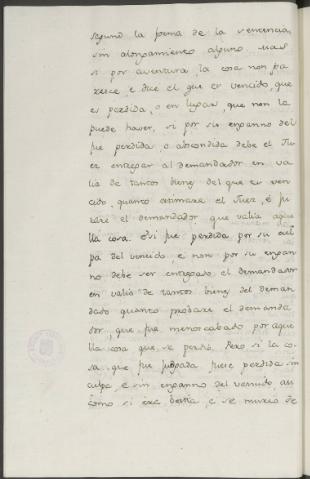 segund la forma de la sentencia,
sin alongamiento alguno. Mas
si por aventura la cosa non pa
resce, e dice el que es vencido, que
es perdida, o en lugar, que non la
puede haver, si por su enganno del
fue perdida, o abscondida debe el Ju
ez entregar al demandador en va
lia de tantos bienes del que es ven
cido, quanto estimare el Juez, e ju
rare el demandador que valia aque
lla cosa. E si fue perdida por su cul
pa del vencido, e non por su engan
no debe ser entregado el demandador
en valia de tantos bienes del deman
dado quanto probare el demanda
dor, que fue menoscabado por aque
lla cosa que se perdió. Pero si la co
sa que fue judgada fuere perdida sin
culpa, e sin enganno del vencido, asi
como si era bestia, e se murio de